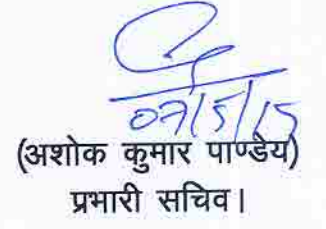 07/5/15
(अशोक कुमार पाण्डेय)
प्रभारी सचिव।